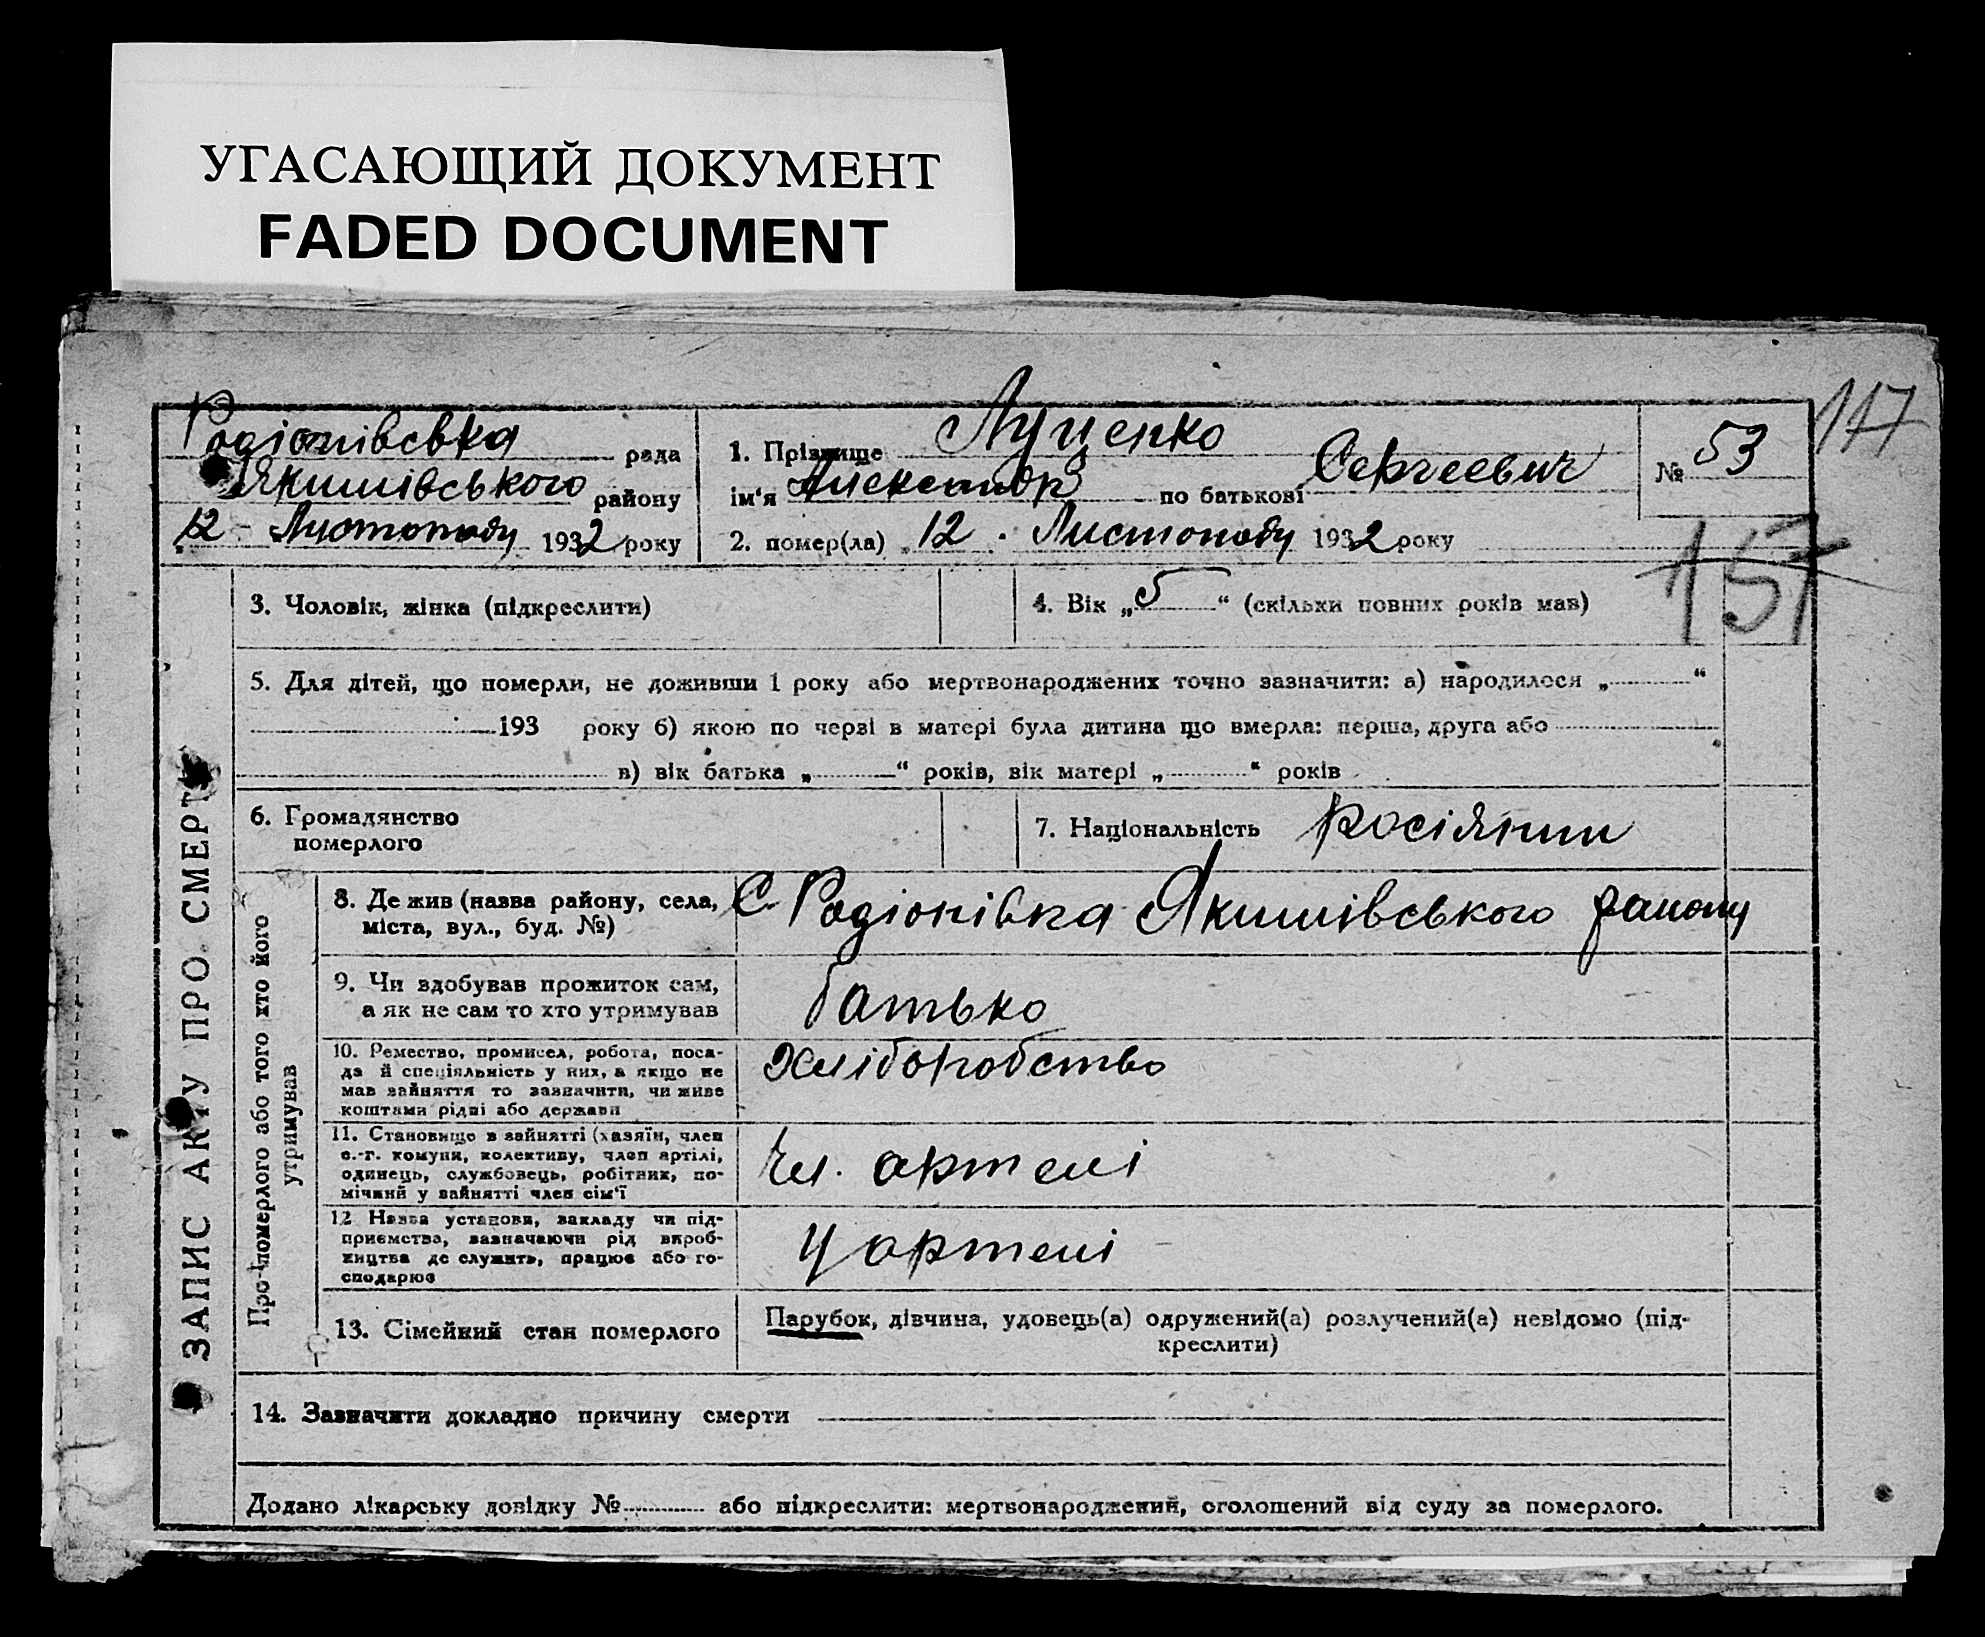 УГАСАЮЩИЙ ДОКУМЕНТ
FADED DOCUMENT
117
Родіонівська рада
Якимівського району
12 - Листопаду 1932 року
1. Прізвище Луценко
ім'я Александр по батькові Сергеевич
2. помер(ла) 12 . Листопаду 1932 року
№ 53
157
3. Чоловік, жінка (підкреслити)
4. Вік „5“ (скільки повних років мав)
5. Для дітей, що померли, не доживши 1 року або мертвонароджених точно зазначити: а) народилося „ “
193 року б) якою по черзі в матері була дитина що вмерла: перша, друга або
в) вік батька „ “ років, вік матері „ “ років
6. Громадянство
померлого
7. Національність росіянин
ЗАПИС АКТУ ПРО СМЕРТЬ
Про померлого або того хто його
утримував
8. Де жив (назва району, села,
міста, вул., буд. №)
С. Родіонівка Якимівського району
9. Чи здобував прожиток сам,
а як не сам то хто утримував
батько
10. Ремество, промисел, робота, поса-
да й спеціяльність у них, а якщо не
мав зайняття то зазначити, чи живе
коштами рідні або держави
Хліборобство
11. Становище в зайнятті (хазяїн, член
с.-г. комуни, колективу, член артілі,
одинець, службовець, робітник, по-
мічний у зайнятті член сім'ї
Чл. артелі
12 Назва установи, закладу чи під-
приємства, зазначаючи рід вироб-
ництва де служить, працює або го-
сподарює
У артелі
13. Сімейний стан померлого
Парубок, дівчина, удовець(а) одружений(а) розлучений(а) невідомо (під-
креслити)
14. Зазначити докладно причину смерти
Додано лікарську довідку № або підкреслити: мертвонароджений, оголошений від суду за померлого.